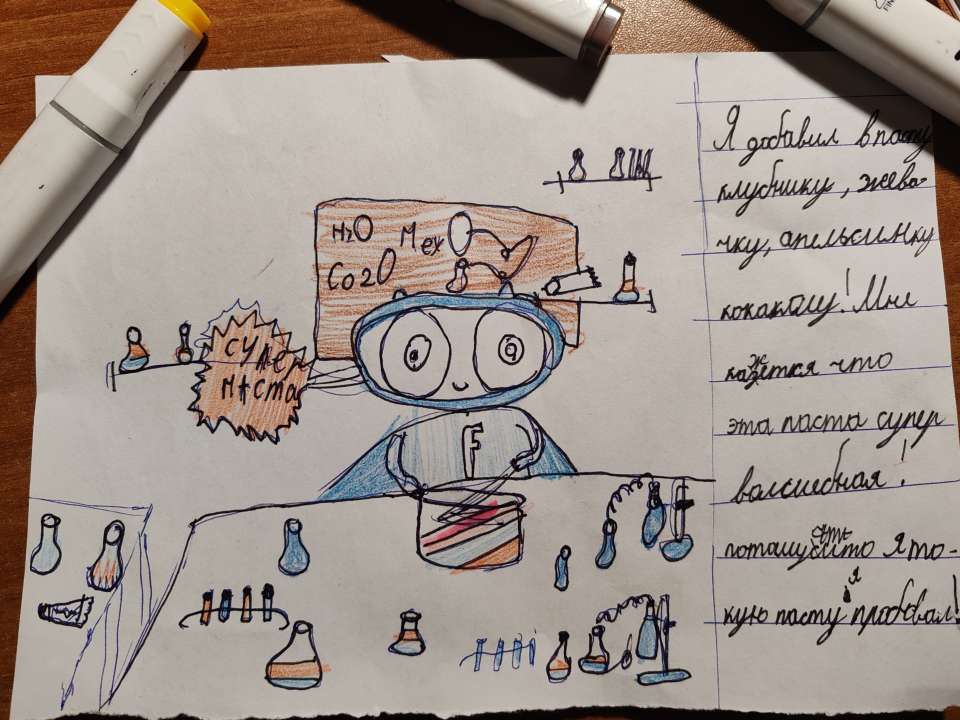 H2O
Mex
Co2O
СУПЕР
ПАСТА
F
Я добавил в пасту
клубнику, жева-
чку, апельсинку
кокаколу! Мне
кажетка что
эта паста супер
волшебная!
я то-
кую пасту я пробовал!